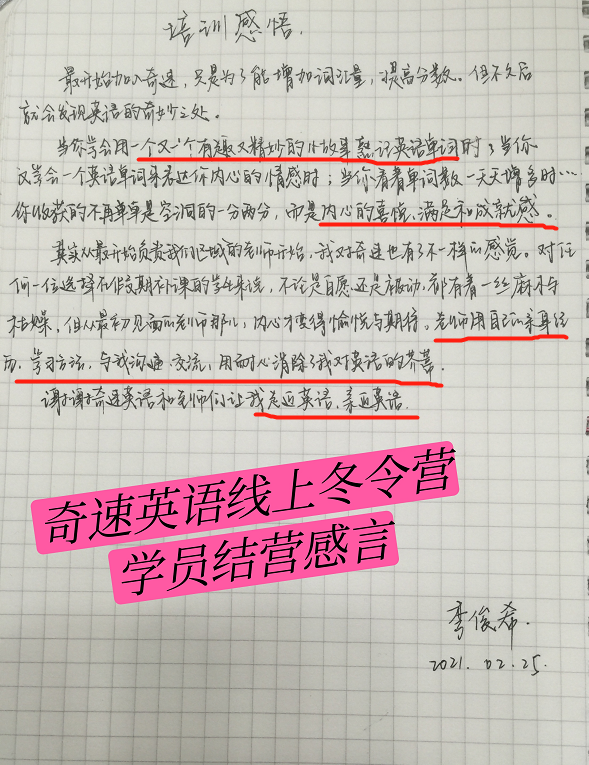 培训感悟.
最开始加入奇速，只是为了能增加词汇量，提高分数。但不久后
就会发现英语的奇妙之处。
当你学会用一个又一个有趣又精妙的小故事熟记英语单词时；当你
又学会一个英语单词来表达你内心的情感时；当你看着单词数一天天增多时…
你收获的不再单单是字词的一分两分，而是内心的喜悦、满足和成就感。
其实从最开始负责我们的老师开始，我对奇速也有了不一样的感觉。对任
何一位选择在假期补课的学生来说，不论是自愿还是被动，都有着一丝麻木与
枯燥，但从最初见面的老师那儿，内心才变得愉悦与期待。老师用自己的亲身经
历、学习方法，与我沟通、交流，用耐心消除了我对英语的芥蒂.
谢谢奇速英语和老师们让我走近英语、亲近英语.
奇速英语线上冬令营
学员结营感言
俊希.
2021.02.25.